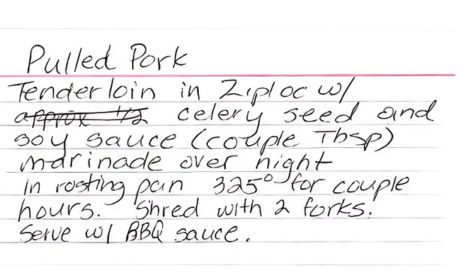 Pulled Pork
Tenderloin in Ziploc w/
approx 1/2 celery seed and
soy sauce (couple Tbsp)
marinade over night
In rosting pan 325° for couple
hours. Shred with 2 forks.
Serve w/ BBQ sauce.